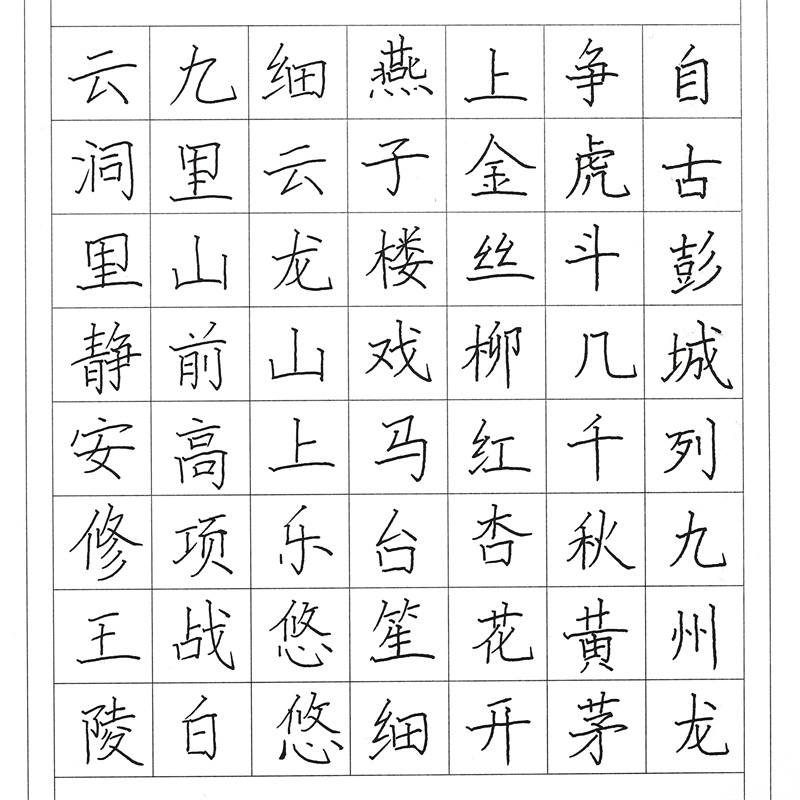 自古彭城列九州龙
争虎斗几千秋黄茅
上金丝柳红杏花开
燕子楼戏马台笙细
细云龙山上乐悠悠
九里山前高项战白
云洞里静安修王陵